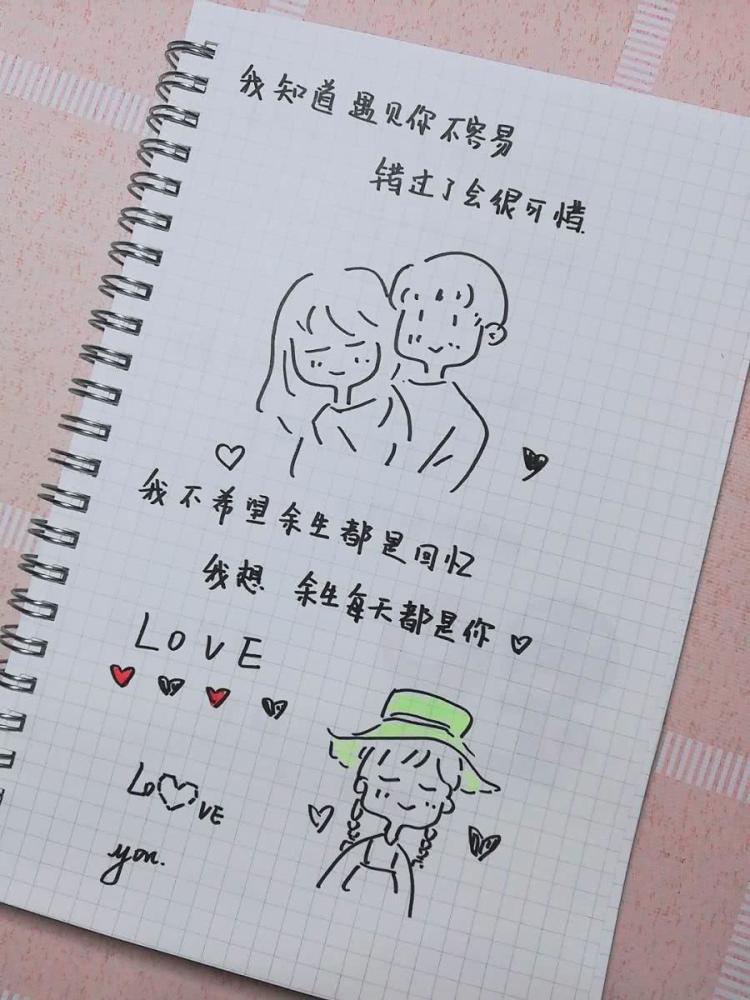 我知道遇见你不容易
错过了会很可惜.
我不希望余生都是回忆
我想 余生每天都是你
LOVE
LOVE
you.